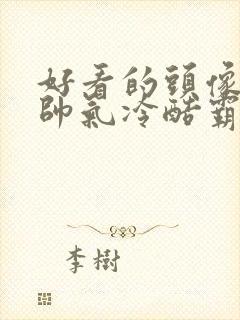 好看的頭像
帥氣冷酷霸
李樹